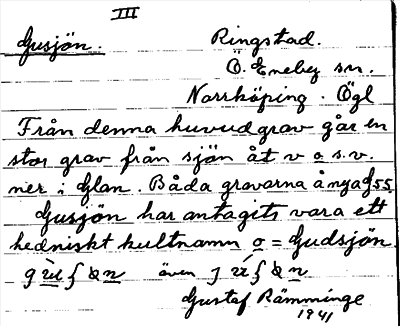 III
Gusjön. Ringstad.
Ö. Eneby sn.
Norrköping. Ögl
Från denna huvudgrav går en
stor grav från sjön åt v o.s.v.
ner i Glan. Båda gravarna å nya G 55.
Gusjön har antagits vara ett
hedniskt kultnamn o = Gudsjön.
även
Gustaf Rämminge
1941